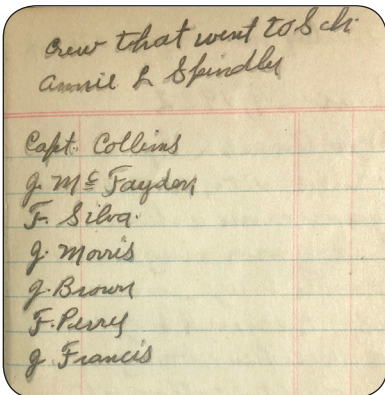 Crew that went to Sch.
Annie L Spindler
Capt. Collins
J. Mc Fayden
F. Silva.
J. Morris
J. Brown
F. Perry
J. Francis